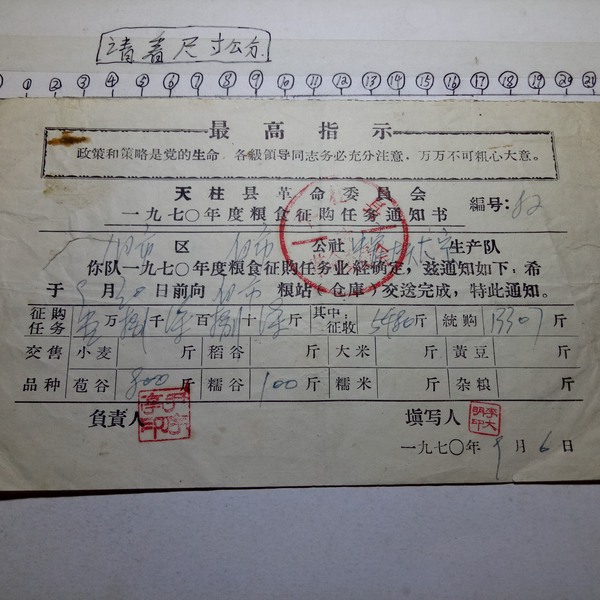 请看尺寸公分
① ② ③ ④ ⑤ ⑥ ⑦ ⑧ ⑨ ⑩ ⑪ ⑫ ⑬ ⑭ ⑮ ⑯ ⑰ ⑱ ⑲ ⑳ ㉑
最高指示
政策和策略是党的生命,各級領导同志务必充分注意,万万不可粗心大意。
天柱县革命委員会
一九七〇年度粮食征购任务通知书 編号:82
区 公社 生产队
你队一九七〇年度粮食征购任务业經确定,兹通知如下:希
于9月30日前向 粮站(仓庫)交送完成,特此通知。
征购任务 万 千 百 十 斤 其中:征收5480斤 統购13307斤
交售 小麦 斤 稻谷 斤 大米 斤 黃豆 斤
品种 苞谷800斤 糯谷100斤 糯米 斤 杂粮 斤
負責人 填写人 李大明印
一九七〇年9月6日